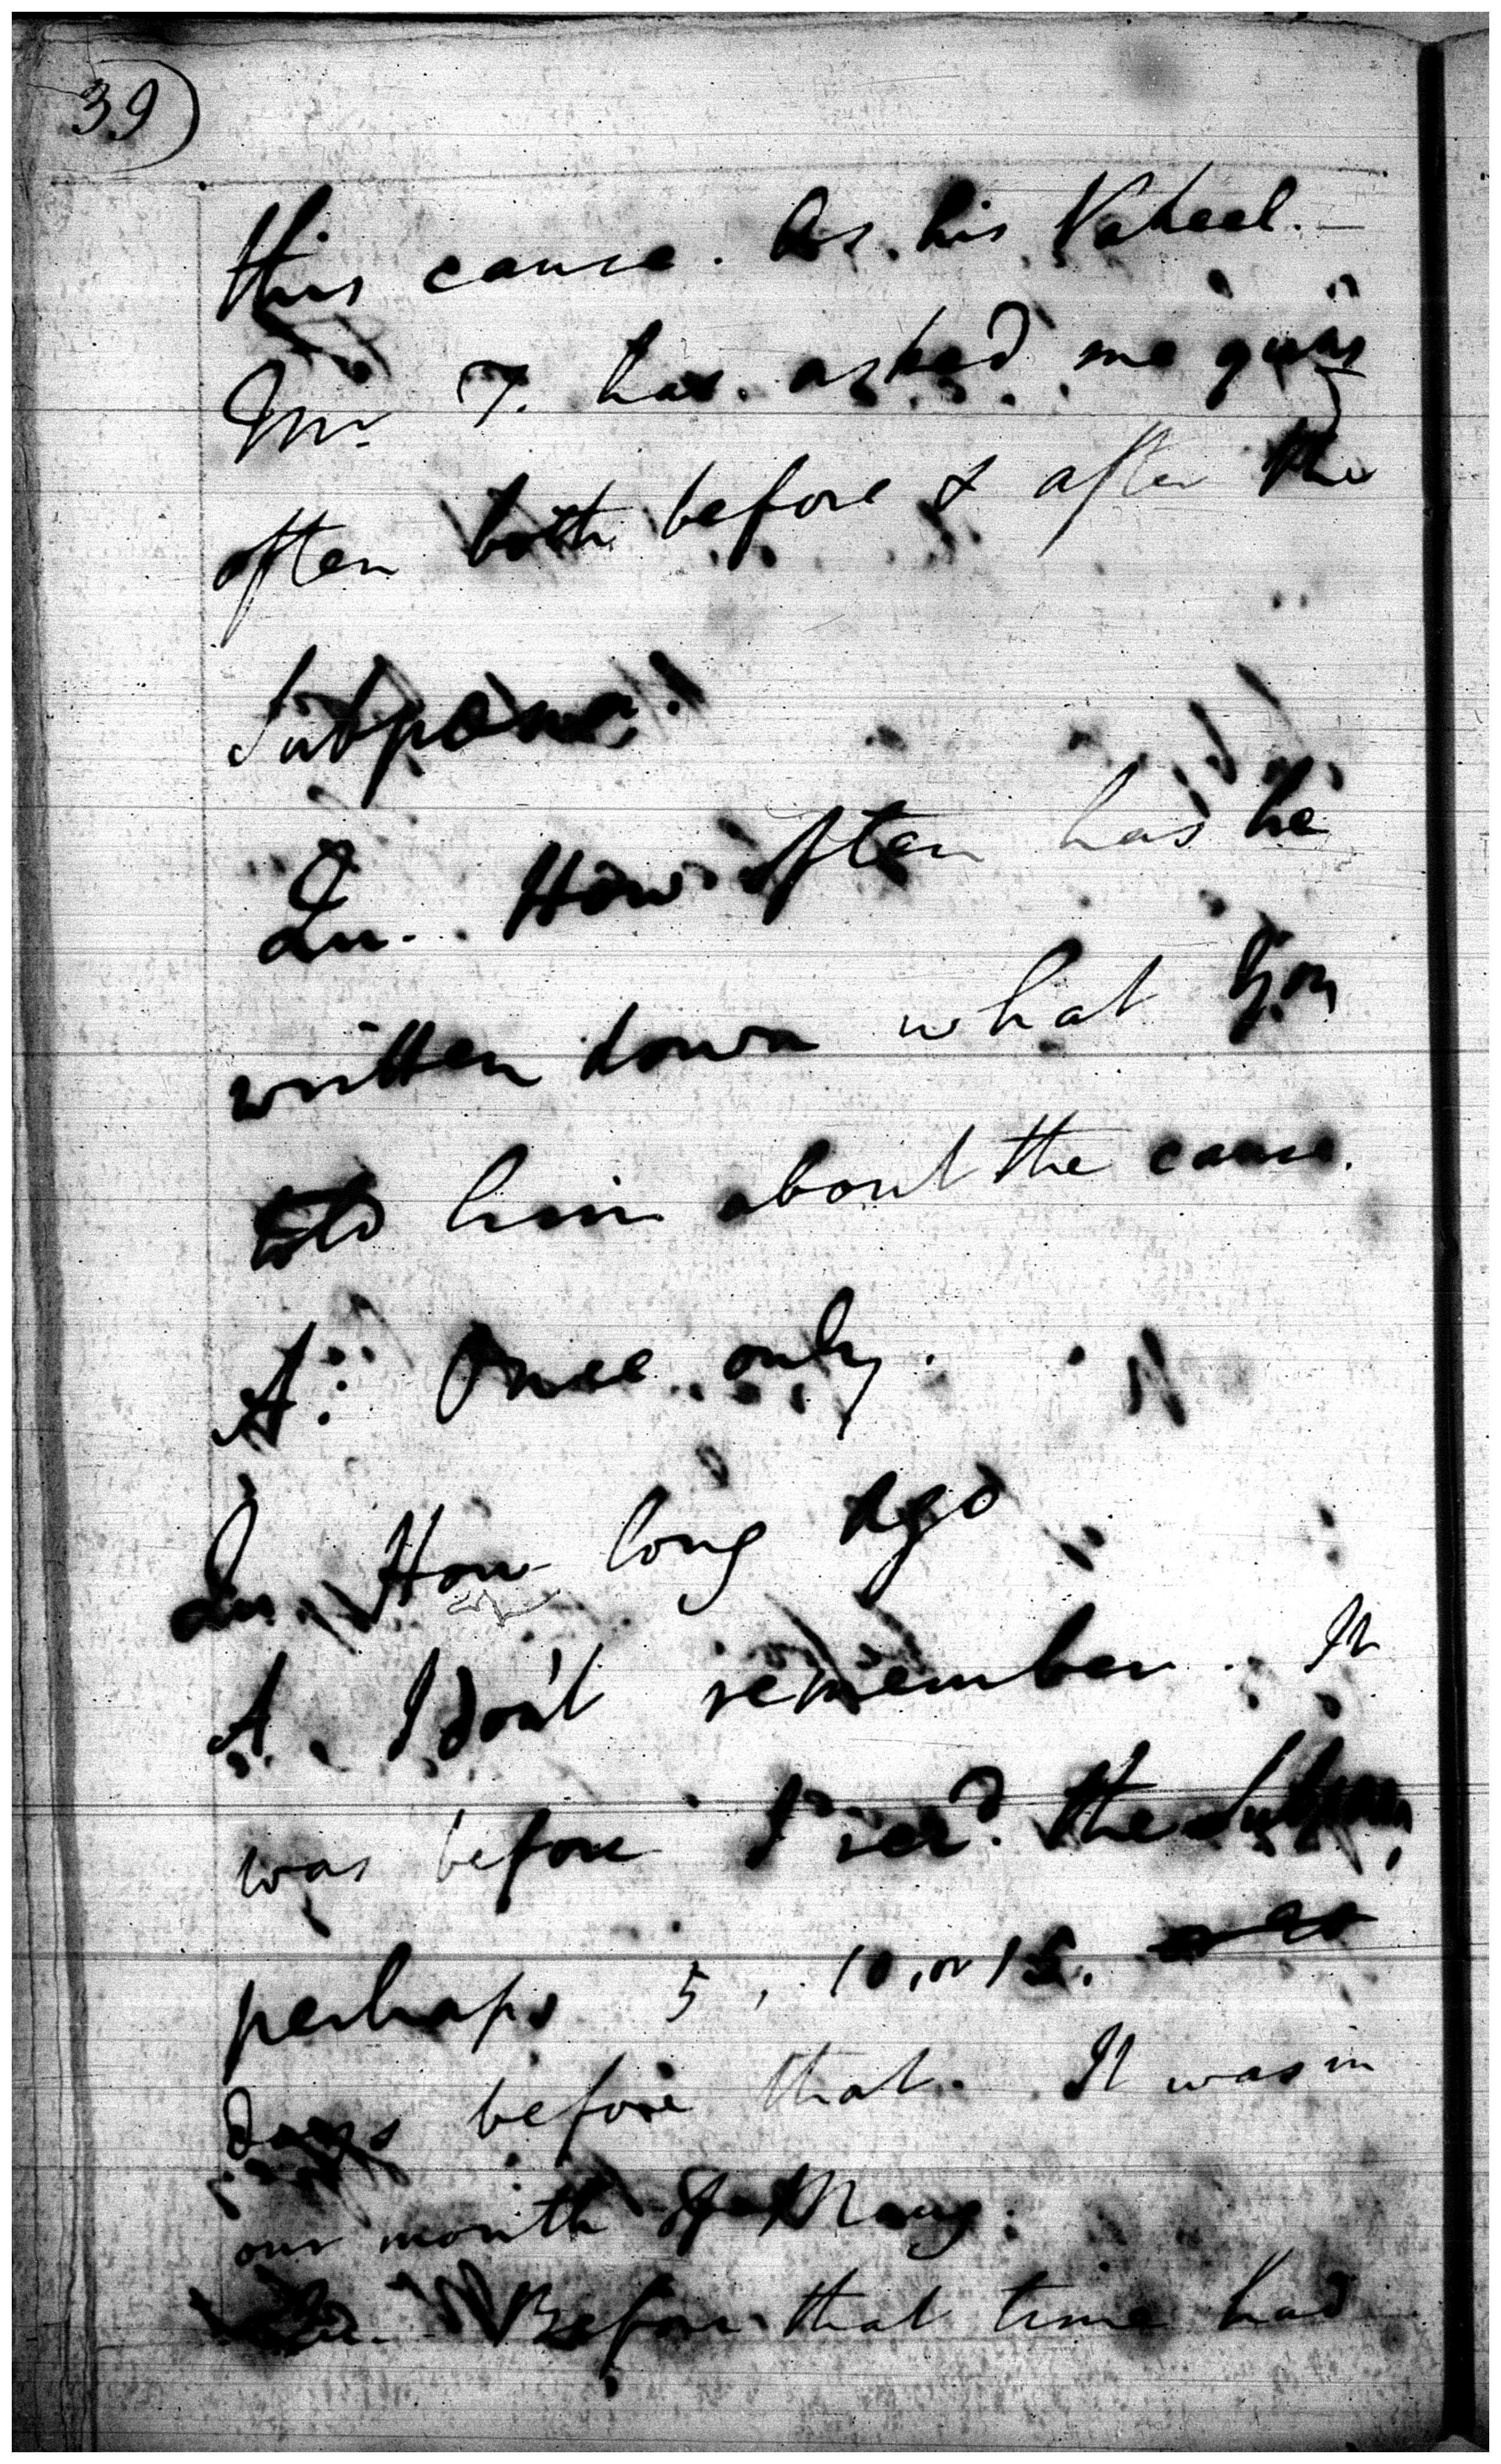 39)
this cause. As his Vakeel.—
Mr. T. has asked me quns
often both before & after the
Subpoena.
Qu. How often has he
written down what you
told him about the cause.
A: Once only.
Qu. How long ago
A. I don't remember. It
was before I recd. the Subpoena,
perhaps 5, 10, or 15.
Days before that. It was in
our month of Maug.
Qu. Before that time had